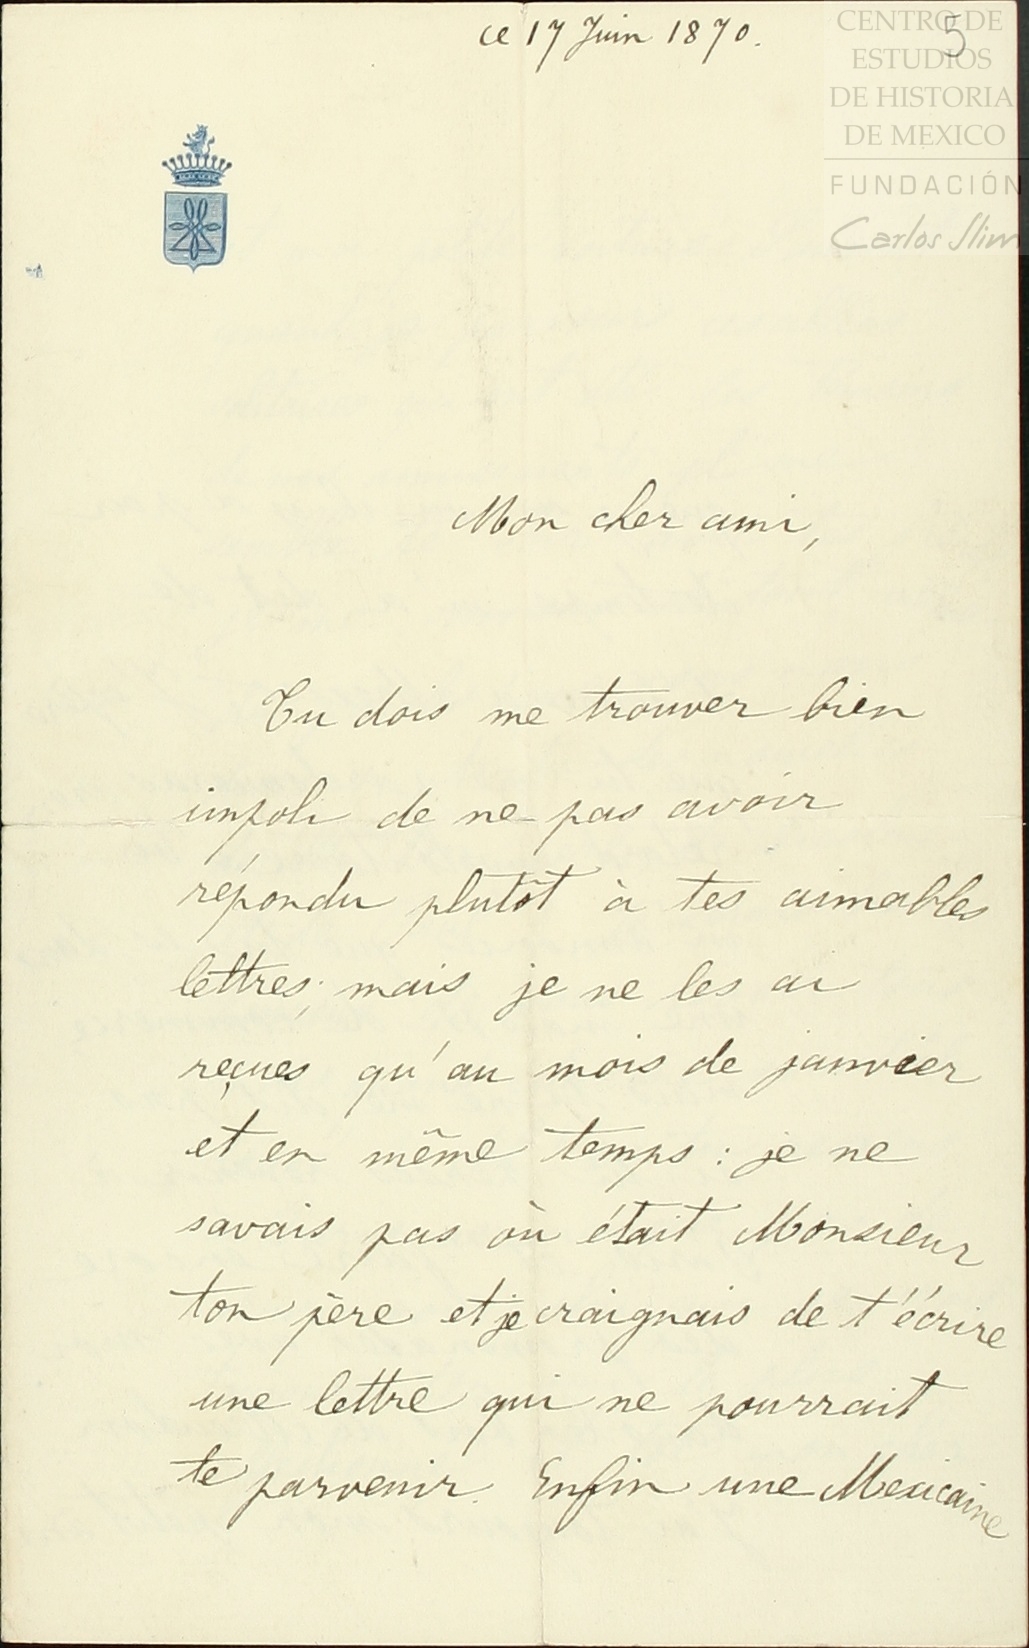 ce 17 Juin 1870.
5
CENTRO DE
ESTUDIOS
DE HISTORIA
DE MEXICO
FUNDACIÓN
Carlos Slim
Mon cher ami,
Tu dois me trouver bien
impoli de ne pas avoir
répondu plutôt à tes aimables
lettres; mais je ne les ai
reçues qu'au mois de janvier
et en même temps : je ne
savais pas où était Monsieur
ton père et je craignais de t'écrire
une lettre qui ne pourrait
te parvenir. Enfin une Mexicaine